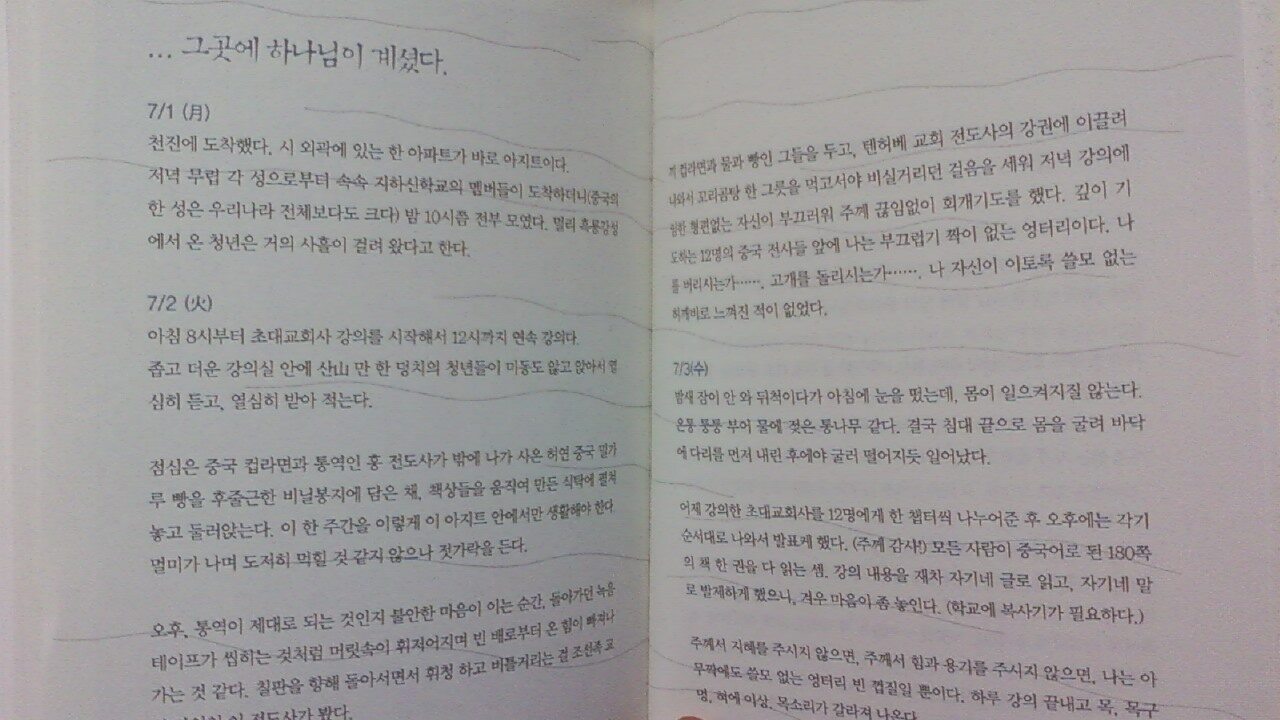 ... 그곳에 하나님이 계셨다.
7/1 (月)
천진에 도착했다. 시 외곽에 있는 한 아파트가 바로 아지트이다.
저녁 무렵 각 성으로부터 속속 지하신학교의 멤버들이 도착하더니(중국의
한 성은 우리나라 전체보다도 크다) 밤 10시쯤 전부 모였다. 멀리 흑룡강성
에서 온 청년은 거의 사흘이 걸려 왔다고 한다.
7/2 (火)
아침 8시부터 초대교회사 강의를 시작해서 12시까지 연속 강의다.
좁고 더운 강의실 안에 산山 만 한 덩치의 청년들이 미동도 않고 앉아서 열
심히 듣고, 열심히 받아 적는다.
점심은 중국 컵라면과 통역인 홍 전도사가 밖에 나가 사온 허연 중국 밀가
루 빵을 후줄근한 비닐봉지에 담은 채, 책상들을 움직여 만든 식탁에 펼쳐
놓고 둘러앉는다. 이 한 주간을 이렇게 이 아지트 안에서만 생활해야 한다.
멀미가 나며 도저히 먹힐 것 같지 않으나 젓가락을 든다.
오후, 통역이 제대로 되는 것인지 불안한 마음이 이는 순간, 돌아가던 녹음
테이프가 씹히는 것처럼 머릿속이 휘저어지며 빈 배로부터 온 힘이 빠져나
가는 것 같다. 칠판을 향해 돌아서면서 휘청 하고 버틀거리는 걸 조선족 교
전도사가 봤다.
컵라면과 물과 빵인 그들을 두고, 텐허베 교회 전도사의 강권에 이끌려
나와서 꼬리곰탕 한 그릇을 먹고서야 비실거리던 걸음을 세워 저녁 강의에
임한 형편없는 자신이 부끄러워 주께 끊임없이 회개기도를 했다. 깊이 기
도하는 12명의 중국 전사들 앞에 나는 부끄럽기 짝이 없는 엉터리이다. 나
를 버리시는가……. 고개를 돌리시는가……. 나 자신이 이토록 쓸모 없는
허깨비로 느껴진 적이 없었다.
7/3(수)
밤새 잠이 안 와 뒤척이다가 아침에 눈을 떴는데, 몸이 일으켜지질 않는다.
온통 퉁퉁 부어 물에 젖은 통나무 같다. 결국 침대 끝으로 몸을 굴려 바닥
에 다리를 먼저 내린 후에야 굴러 떨어지듯 일어났다.
어제 강의한 초대교회사를 12명에게 한 챕터씩 나누어준 후 오후에는 각기
순서대로 나와서 발표케 했다. (주께 감사!) 모든 사람이 중국어로 된 180쪽
의 책 한 권을 다 읽는 셈. 강의 내용을 재차 자기네 글로 읽고, 자기네 말
로 발제하게 했으니, 겨우 마음이 좀 놓인다. (학교에 복사기가 필요하다.)
주께서 지혜를 주시지 않으면, 주께서 힘과 용기를 주시지 않으면, 나는 아
무짝에도 쓸모 없는 엉터리 빈 껍질일 뿐이다. 하루 강의 끝내고 목, 목구
멍, 혀에 이상, 목소리가 갈라져 나온다.